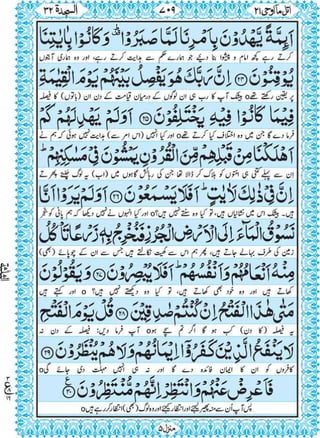 اتل مآ اوحی ۲۱
۷۰۹
السجدۃ ۳۲
اَئِمَّةً يَّهْدُوْنَ بِاَمْرِنَا لَمَّا صَبَرُوْا ۫ؕ وَ كَانُوْا بِاٰيٰتِنَا
کرتے رہے کچھ امام و پیشوا بنا دیئے جو ہمارے حکم سے ہدایت کرتے رہے، اور وہ ہماری آیتوں
يُوْقِنُوْنَ ۲۴ اِنَّ رَبَّكَ هُوَ يَفْصِلُ بَيْنَهُمْ يَوْمَ الْقِيٰمَةِ
پر یقین رکھتے تھے۝ بیشک آپ کا رب ہی ان لوگوں کے درمیان قیامت کے دن ان (باتوں) کا فیصلہ
فِيْمَا كَانُوْا فِيْهِ يَخْتَلِفُوْنَ ۲۵ اَوَ لَمْ يَهْدِ لَهُمْ كَمْ
فرما دے گا جن میں وہ اختلاف کیا کرتے تھے۝ اور کیا انہیں (اس امر سے) ہدایت نہیں ہوئی کہ ہم نے
اَهْلَكْنَا مِنْ قَبْلِهِمْ مِّنَ الْقُرُوْنِ يَمْشُوْنَ فِيْ مَسٰكِنِهِمْ ؕ
ان سے پہلے کتنی ہی امتوں کو ہلاک کر ڈالا تھا جن کی رہائش گاہوں میں (اب) یہ لوگ چلتے پھرتے
اِنَّ فِيْ ذٰلِكَ لَاٰيٰتٍ ؕ اَفَلَا يَسْمَعُوْنَ ۲۶ اَوَ لَمْ يَرَوْا اَنَّا
ہیں۔ بیشک اس میں نشانیاں ہیں، تو کیا وہ سنتے نہیں ہیں۝ اور کیا انہوں نے نہیں دیکھا کہ ہم پانی کو بنجر
نَسُوْقُ الْمَآءَ اِلَى الْاَرْضِ الْجُرُزِ فَنُخْرِجُ بِهٖ زَرْعًا تَاْكُلُ
زمین کی طرف بہالے جاتے ہیں، پھر ہم اس سے کھیت نکالتے ہیں جس سے ان کے چوپائے (بھی)
مِنْهُ اَنْعَامُهُمْ وَ اَنْفُسُهُمْ ؕ اَفَلَا يُبْصِرُوْنَ ۲۷ وَ يَقُوْلُوْنَ
کھاتے ہیں اور وہ خود بھی کھاتے ہیں، تو کیا وہ دیکھتے نہیں ہیں۝ اور کہتے ہیں
مَتٰى هٰذَا الْفَتْحُ اِنْ كُنْتُمْ صٰدِقِيْنَ ۲۸ قُلْ يَوْمَ الْفَتْحِ
یہ فیصلہ (کا دن) کب ہو گا اگر تم سچے ہو۝ آپ فرما دیں: فیصلہ کے دن نہ
لَا يَنْفَعُ الَّذِيْنَ كَفَرُوْۤا اِيْمَانُهُمْ وَ لَا هُمْ يُنْظَرُوْنَ ۲۹
کافروں کو ان کا ایمان فائدہ دے گا اور نہ ہی انہیں مہلت دی جائے گی۝
فَاَعْرِضْ عَنْهُمْ وَ انْتَظِرْ اِنَّهُمْ مُّنْتَظِرُوْنَ ۳۰
پس آپ اُن سے منہ پھیر لیجئے اور انتظار کیجئے اور وہ لوگ (بھی) انتظار کر رہے ہیں۝
منزل ۵